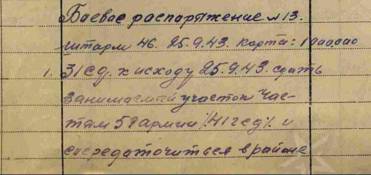 Боевое распоряжение №13.
штарм 46. 25.9.43. карта: 100.000
1. 31 сд. к исходу 25.9.43. сдать
занимаемый участок час-
там 58 армии /41 гсд/ и
сосредоточиться в районе